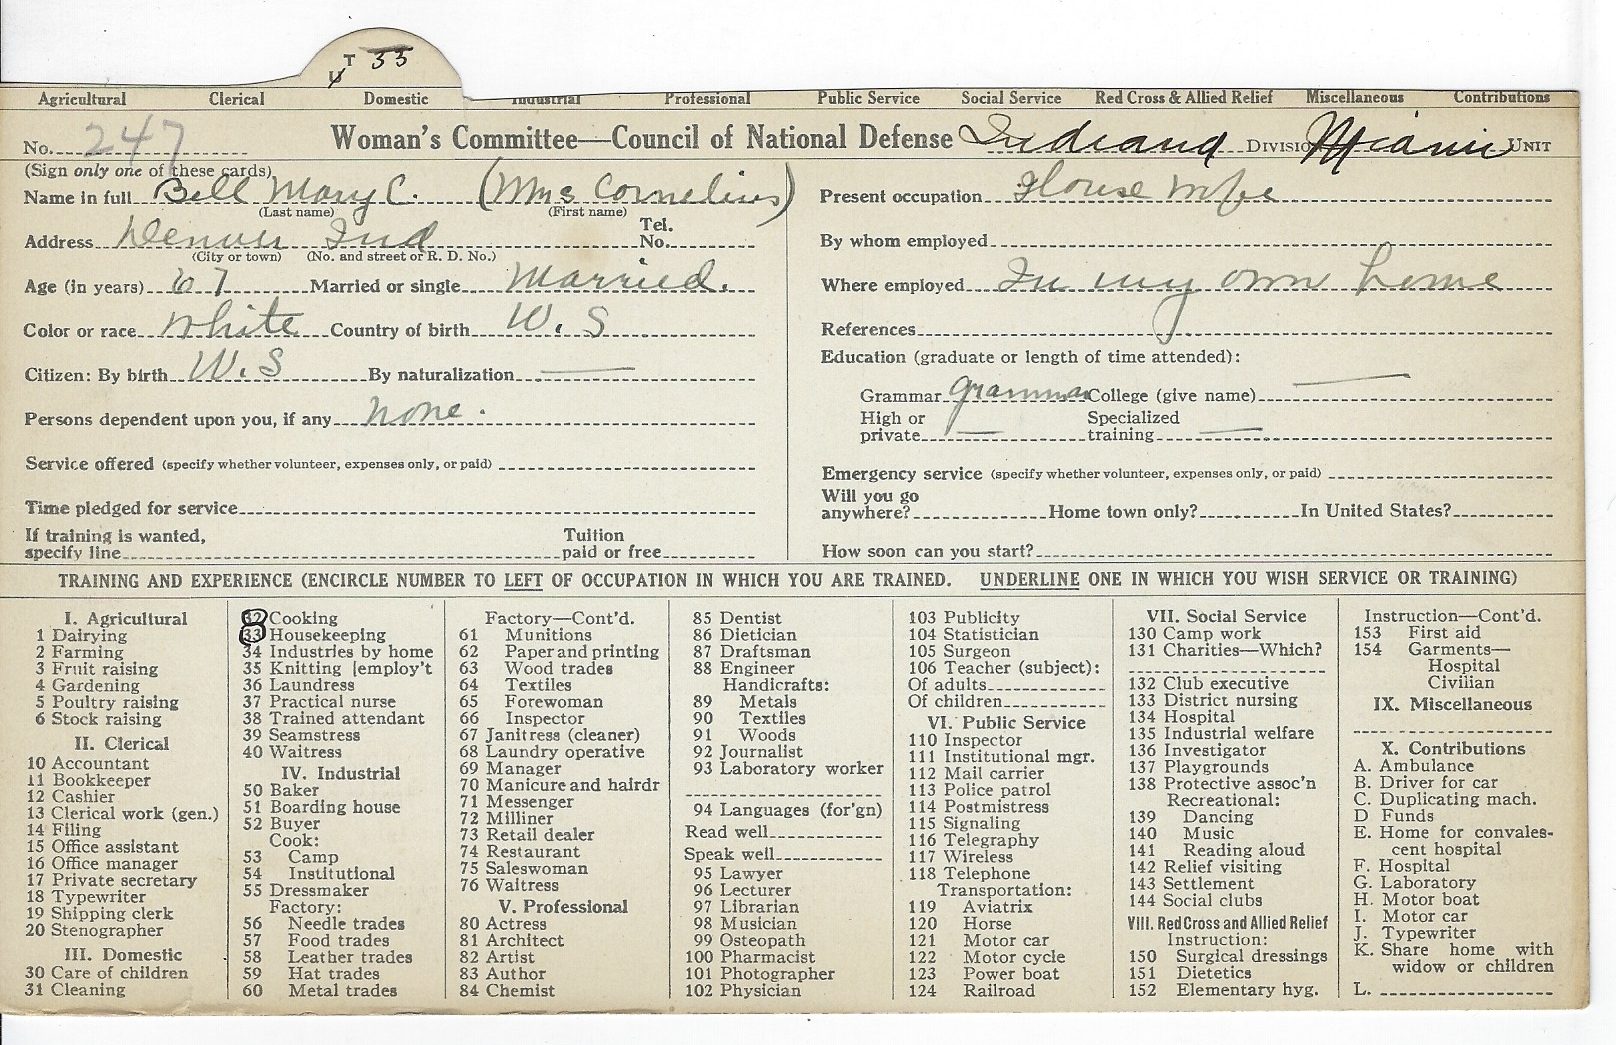 T 33
Agricultural Clerical Domestic Industrial Professional Public Service Social Service Red Cross & Allied Relief Miscellaneous Contributions
No. 247 Woman's Committee—Council of National Defense Indiana Division Miami Unit
(Sign only one of these cards)
Name in full Bell Mary C. (Mrs Cornelius)
(Last name) (First name)
Address Denver Ind Tel. No.
(City or town) (No. and street or R. D. No.)
Age (in years) 67 Married or single Married.
Color or race White Country of birth U. S
Citizen: By birth U. S By naturalization —
Persons dependent upon you, if any none.
Service offered (specify whether volunteer, expenses only, or paid)
Time pledged for service
If training is wanted, specify line Tuition paid or free
Present occupation House Wife
By whom employed
Where employed In my own home
References
Education (graduate or length of time attended):
Grammar grammar College (give name) —
High or private — Specialized training —
Emergency service (specify whether volunteer, expenses only, or paid)
Will you go anywhere? Home town only? In United States?
How soon can you start?
TRAINING AND EXPERIENCE (ENCIRCLE NUMBER TO LEFT OF OCCUPATION IN WHICH YOU ARE TRAINED. UNDERLINE ONE IN WHICH YOU WISH SERVICE OR TRAINING)
I. Agricultural
1 Dairying
2 Farming
3 Fruit raising
4 Gardening
5 Poultry raising
6 Stock raising
II. Clerical
10 Accountant
11 Bookkeeper
12 Cashier
13 Clerical work (gen.)
14 Filing
15 Office assistant
16 Office manager
17 Private secretary
18 Typewriter
19 Shipping clerk
20 Stenographer
III. Domestic
30 Care of children
31 Cleaning
32 Cooking
33 Housekeeping
34 Industries by home
35 Knitting [employ't
36 Laundress
37 Practical nurse
38 Trained attendant
39 Seamstress
40 Waitress
IV. Industrial
50 Baker
51 Boarding house
52 Buyer
Cook:
53 Camp
54 Institutional
55 Dressmaker
Factory:
56 Needle trades
57 Food trades
58 Leather trades
59 Hat trades
60 Metal trades
Factory—Cont'd.
61 Munitions
62 Paper and printing
63 Wood trades
64 Textiles
65 Forewoman
66 Inspector
67 Janitress (cleaner)
68 Laundry operative
69 Manager
70 Manicure and hairdr
71 Messenger
72 Milliner
73 Retail dealer
74 Restaurant
75 Saleswoman
76 Waitress
V. Professional
80 Actress
81 Architect
82 Artist
83 Author
84 Chemist
85 Dentist
86 Dietician
87 Draftsman
88 Engineer
Handicrafts:
89 Metals
90 Textiles
91 Woods
92 Journalist
93 Laboratory worker
94 Languages (for'gn)
Read well
Speak well
95 Lawyer
96 Lecturer
97 Librarian
98 Musician
99 Osteopath
100 Pharmacist
101 Photographer
102 Physician
103 Publicity
104 Statistician
105 Surgeon
106 Teacher (subject):
Of adults
Of children
VI. Public Service
110 Inspector
111 Institutional mgr.
112 Mail carrier
113 Police patrol
114 Postmistress
115 Signaling
116 Telegraphy
117 Wireless
118 Telephone
Transportation:
119 Aviatrix
120 Horse
121 Motor car
122 Motor cycle
123 Power boat
124 Railroad
VII. Social Service
130 Camp work
131 Charities—Which?
132 Club executive
133 District nursing
134 Hospital
135 Industrial welfare
136 Investigator
137 Playgrounds
138 Protective assoc'n
Recreational:
139 Dancing
140 Music
141 Reading aloud
142 Relief visiting
143 Settlement
144 Social clubs
VIII. Red Cross and Allied Relief
Instruction:
150 Surgical dressings
151 Dietetics
152 Elementary hyg.
Instruction—Cont'd.
153 First aid
154 Garments—
Hospital
Civilian
IX. Miscellaneous
X. Contributions
A. Ambulance
B. Driver for car
C. Duplicating mach.
D Funds
E. Home for convales-
cent hospital
F. Hospital
G. Laboratory
H. Motor boat
I. Motor car
J. Typewriter
K. Share home with
widow or children
L.